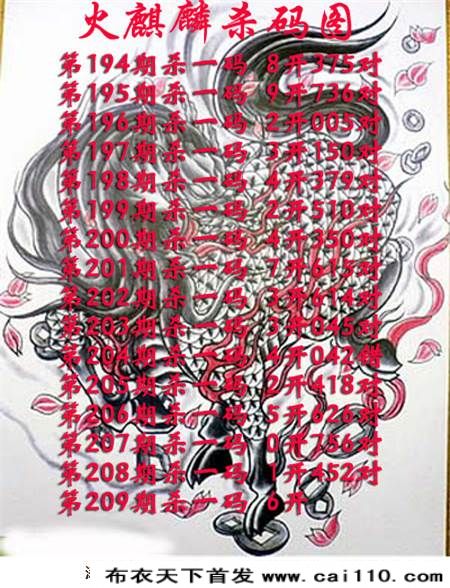 火麒麟杀码图
第194期杀一码 8开375对
第195期杀一码 9开736对
第196期杀一码 2开005对
第197期杀一码 3开150对
第198期杀一码 4开379对
第199期杀一码 2开510对
第200期杀一码 4开350对
第201期杀一码 7开615对
第202期杀一码 3开614对
第203期杀一码 3开045对
第204期杀一码 4开042错
第205期杀一码 2开418对
第206期杀一码 5开626对
第207期杀一码 0开756对
第208期杀一码 1开452对
第209期杀一码 6开
布衣天下首发 www.cai110.com